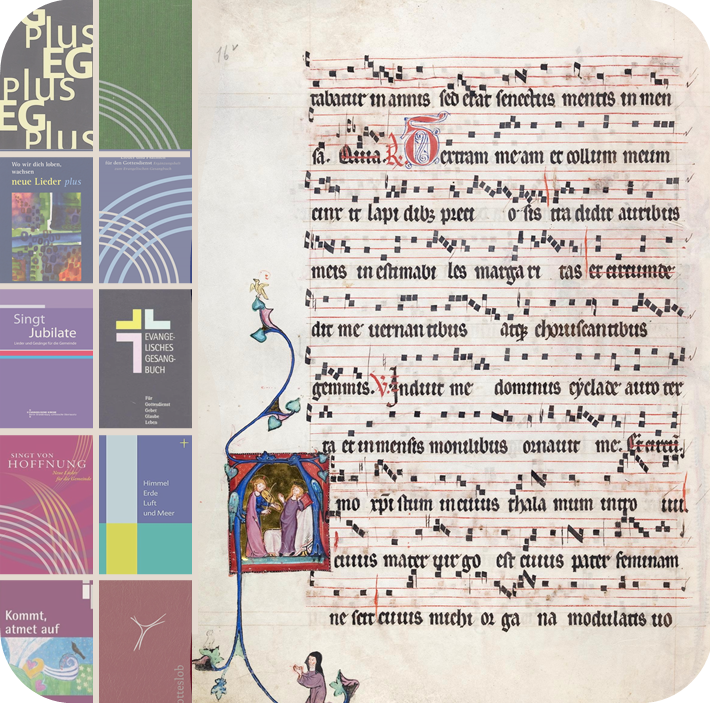 G
Plus
EG
Plus
EG
Plus
Wo wir dich loben,
wachsen
neue Lieder plus
für den Gottesdienst
Singt
Jubilate
Lieder und Gesänge für die Gemeinde
EVANGE-
LISCHES
GESANG-
BUCH
Für
Gottesdienst
Gebet
Glaube
Leben
SINGT VON
HOFFNUNG
Neue Lieder
für die Gemeinde
Himmel
Erde
Luft
und Meer
Kommt,
atmet auf
otteslob
16v
tabatur in annis sed erat senectus mentis in men
sa. Quia R. Dexteram meam et collum meum
cinx it lapi dibz preti o sis tra didit auribus
meis in estimabi les marga ri tas et circumde
dit me vernan tibus atqz choruscantibus
gemmis. V. Induit me dominus cyclade auro tex
ta et inmensis monilibus ornavit me. Et circu.
mo xpi stum in cuius thala mum intro
cuius mater virgo est cuius pater feminam
ne scit cuius michi or ga na modulatis vo